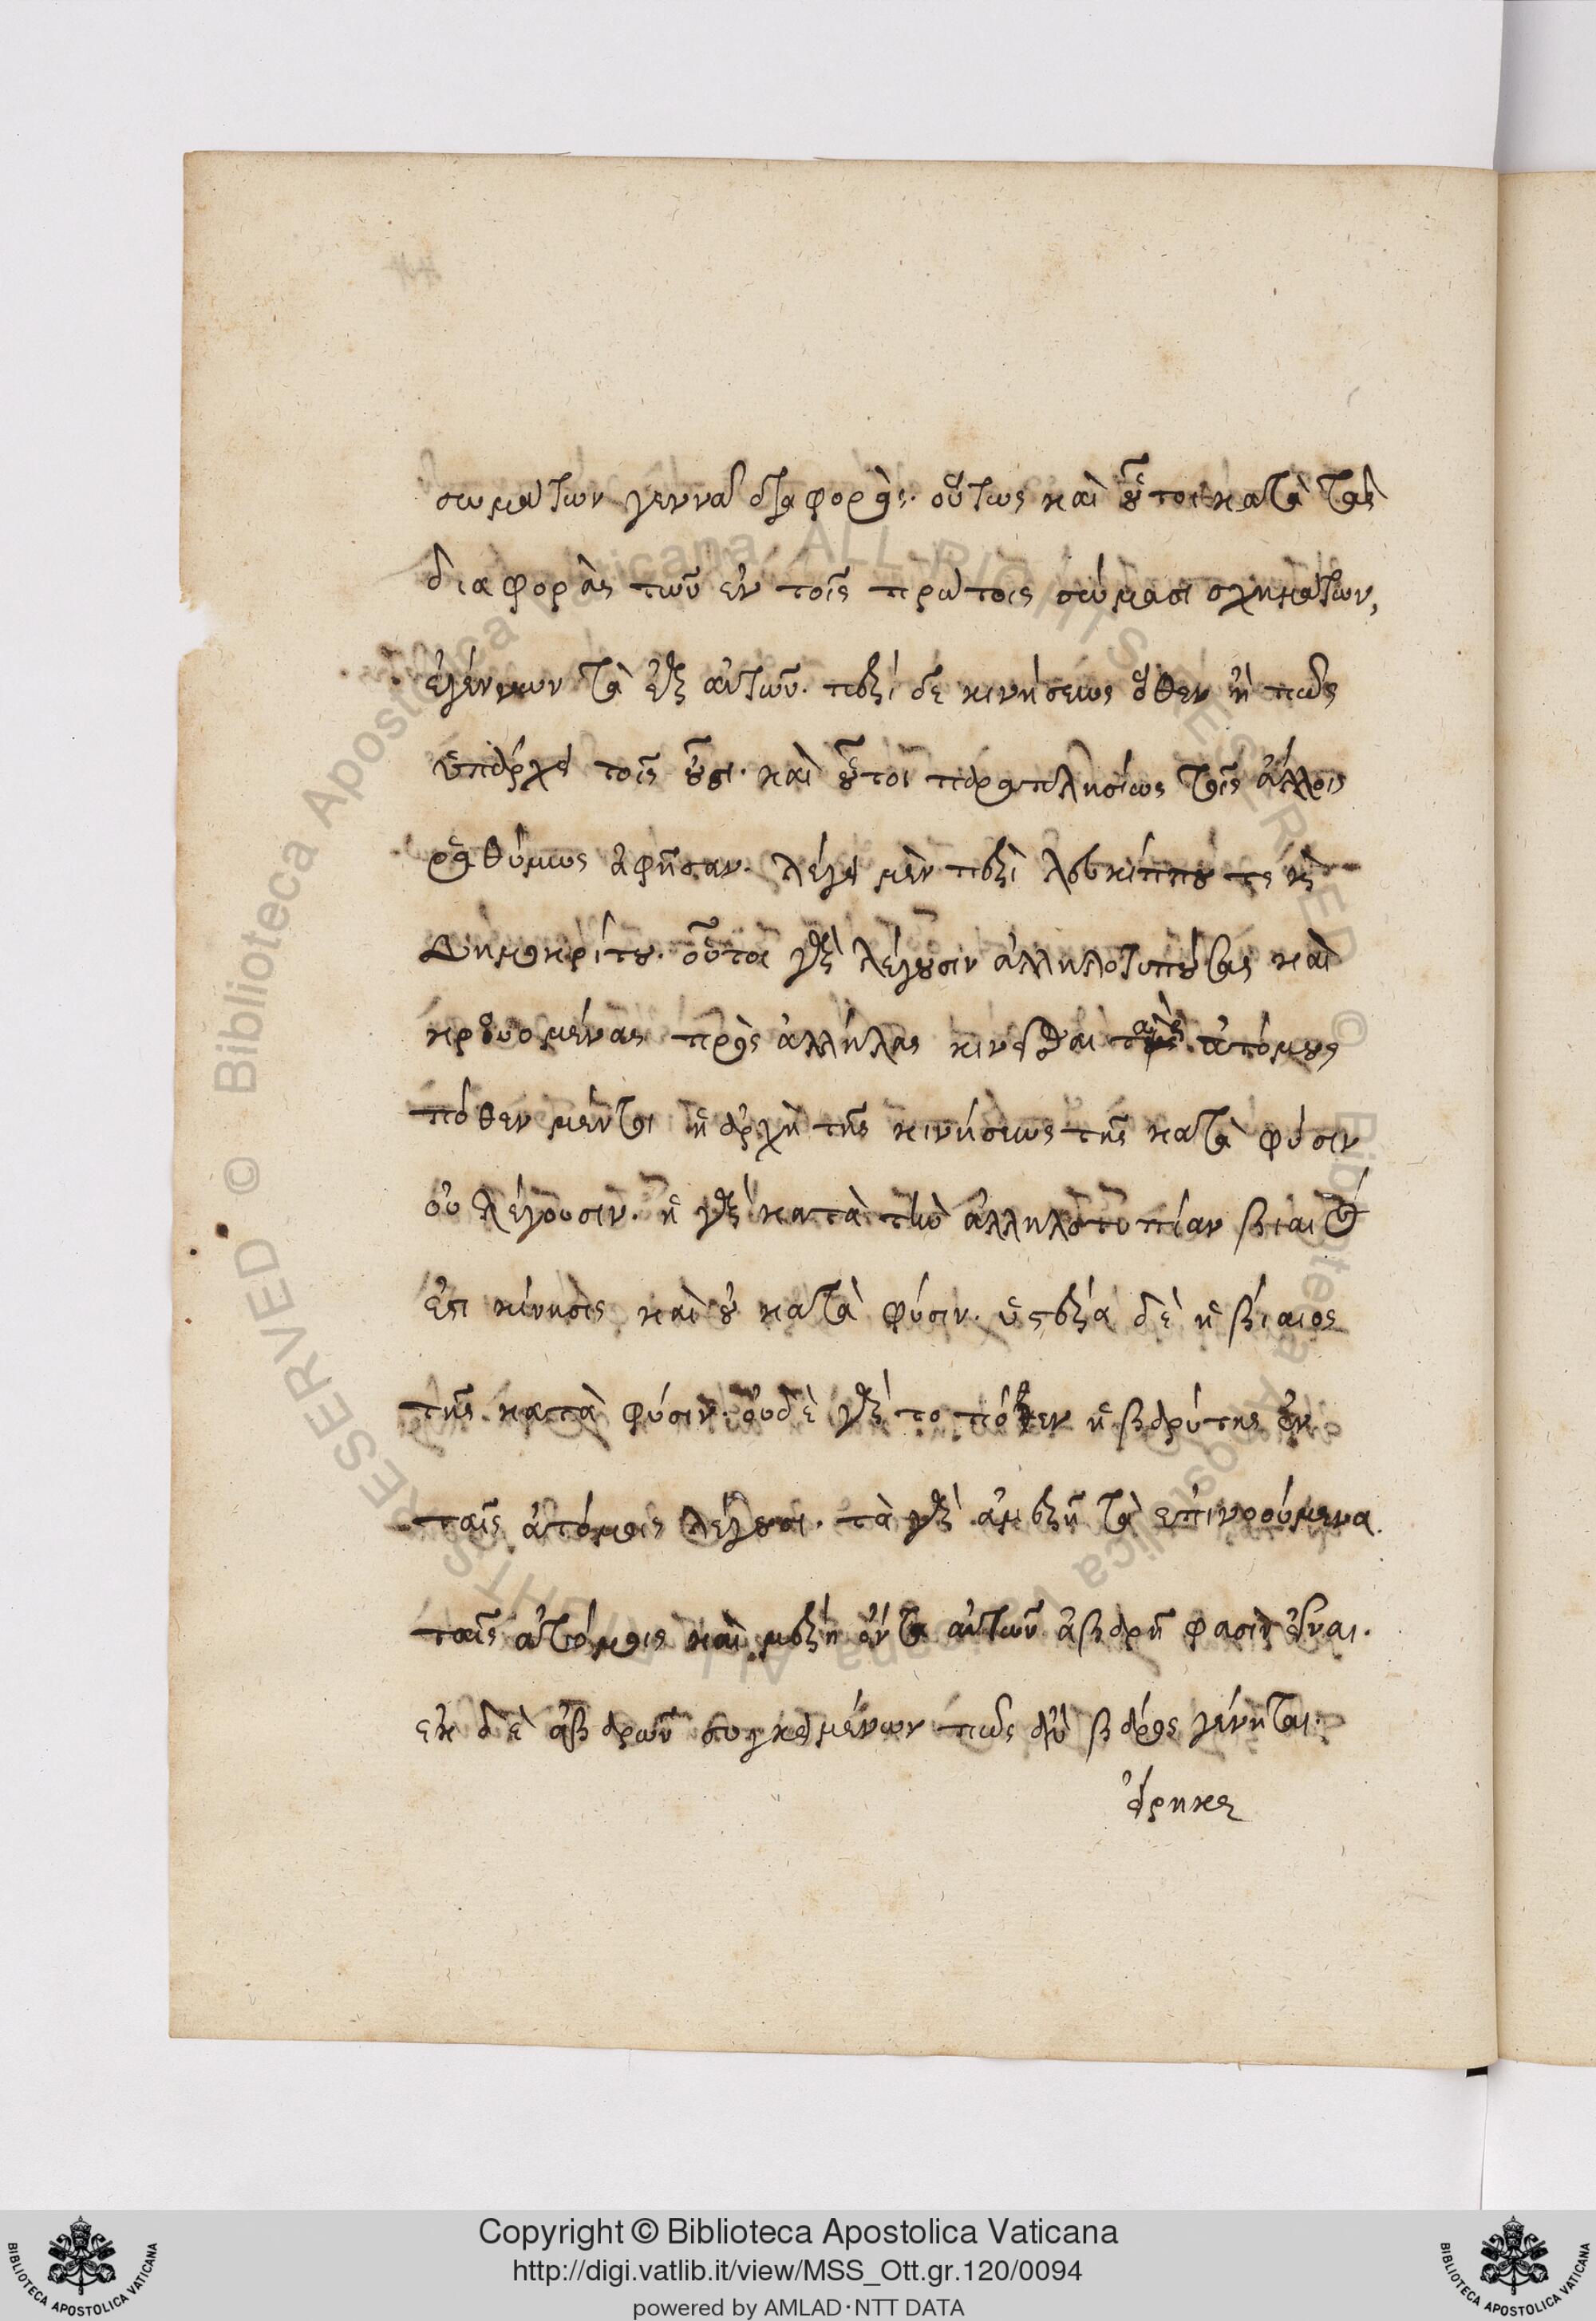 σωμάτων γεννᾶ διαφοράς. οὕτως καὶ οὗτοι κατὰ τὰς
διαφορὰς τῶν ἐν τοῖς πρώτοις σώμασι σχημάτων,
ἐγέννων τὰ ἐξ αὐτῶν. περὶ δὲ κινήσεως ὅθεν ἢ πῶς
ὑπάρχει τοῖς οὖσι. καὶ οὗτοι παραπλησίως τοῖς ἄλλοις
ῥαθύμως ἀφῆσαν. λέγει μὲν περὶ λευκίππου τε καὶ
Δημοκρίτου. οὗτοι γὰρ λέγουσιν ἀλληλοτυπούσας καὶ
κρουομένας πρὸς ἀλλήλας κινεῖσθαι τὰς ἀτόμους
πόθεν μέντοι ἡ ἀρχὴ τῆς κινήσεως τῆς κατὰ φύσιν
οὐ λέγουσιν. ἡ γὰρ κατὰ τὴν ἀλληλοτυπίαν βίαιός
ἐστι κίνησις καὶ οὐ κατὰ φύσιν. ὑστέρα δὲ ἡ βίαιος
τῆς κατὰ φύσιν. οὐδὲ γὰρ το πόθεν ἡ βαρύτης ἐν
ταῖς ἀτόμοις λέγουσι. τὰ γὰρ ἀμερῆ τὰ ἐπινοούμενα
ταῖς ἀτόμοις καὶ μέρη ὄντα αὐτῶν ἀβαρῆ φασὶν εἶναι.
ἐκ δὲ ἀβαρῶν συγκειμένων πῶς ἂν βάρος γένηται.
εἴρηκε
Copyright © Biblioteca Apostolica Vaticana
http://digi.vatlib.it/view/MSS_Ott.gr.120/0094
powered by AMLAD·NTT DATA